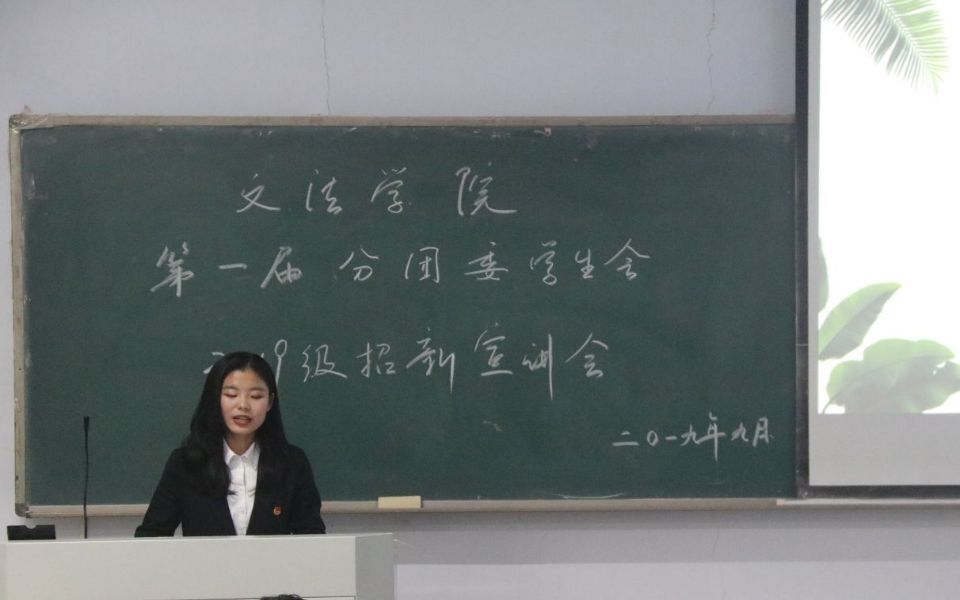 文法学院
第一届分团委学生会
19级招新宣训会
二0一九年九月